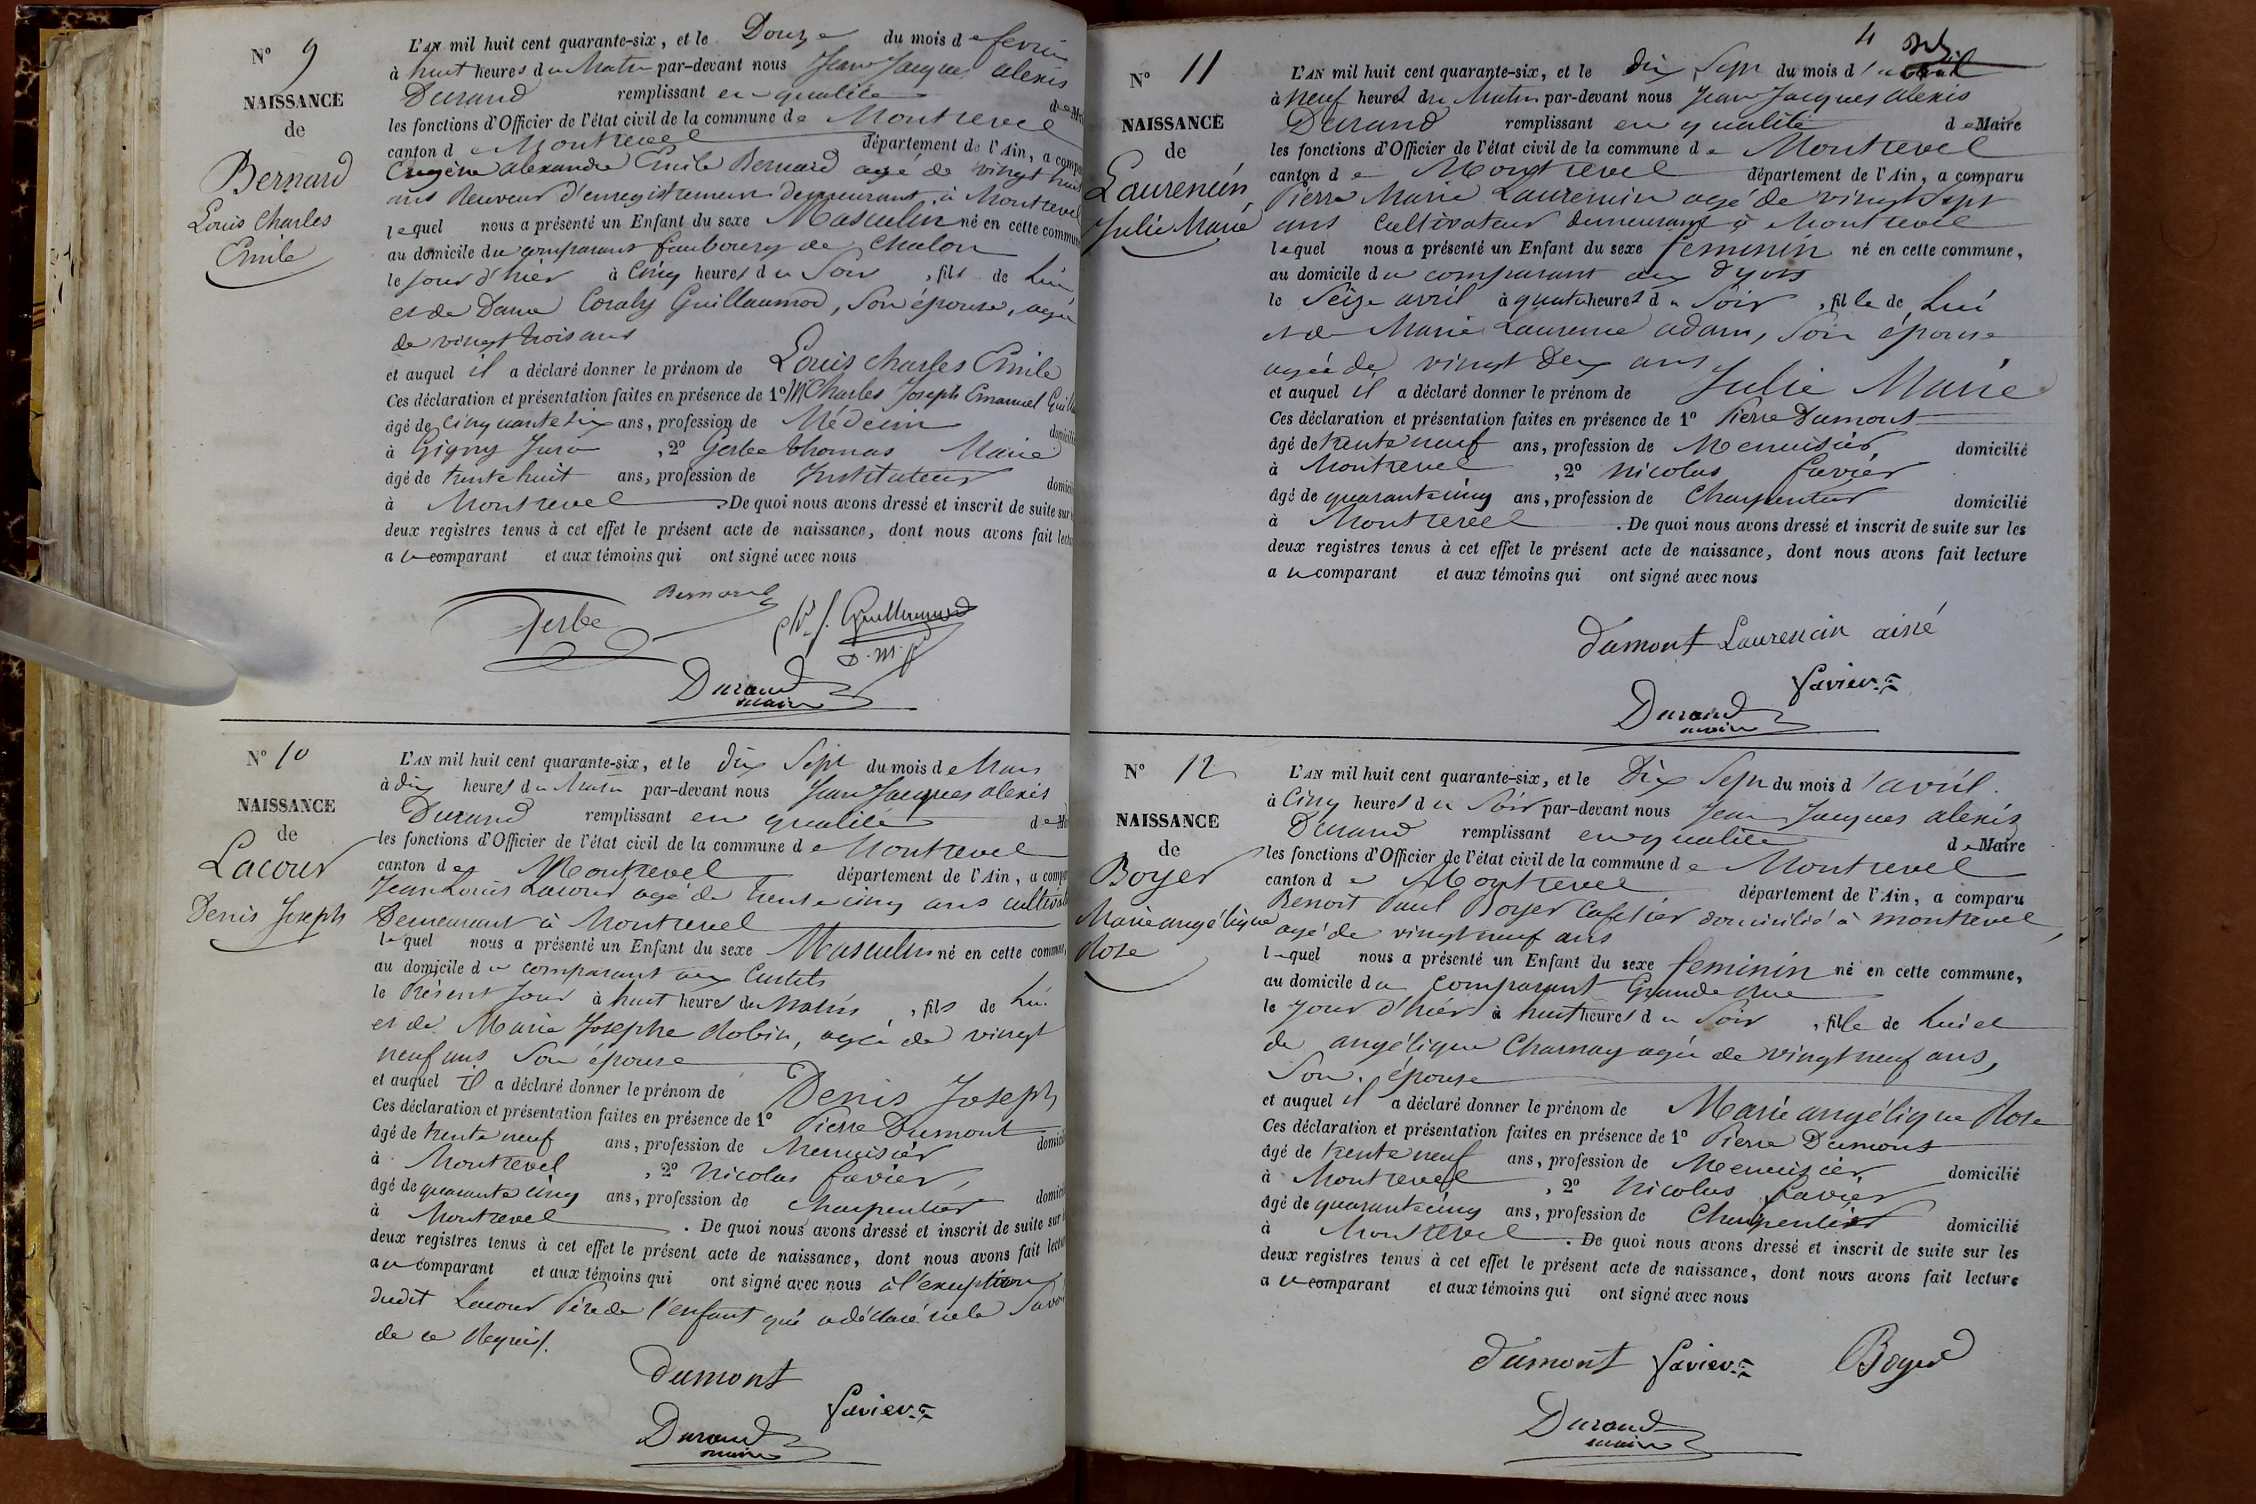 N° 9
NAISSANCE
de
Bernard
Louis Charles
Emile
L'AN mil huit cent quarante-six, et le Douze du mois de fevrier
à huit heures du Matin par-devant nous Jean Jacques alexis
Durand remplissant en qualité de
les fonctions d'Officier de l'état civil de la commune de Montrevel
canton de Montrevel département de l'Ain, a compa
Eugène alexandre Emile Bernard agé de vingt huit
ans Receveur d'enregistrement demeurant à Montrevel
lequel nous a présenté un Enfant du sexe Masculin né en cette commun
au domicile du comparant faubourg de Chalon
le jour d'hier à Cinq heures du Soir, fils de Lui
et de Dame Coraly Guillaumod, Son épouse, agée
de vingt trois ans
et auquel il a déclaré donner le prénom de Louis Charles Emile
Ces déclaration et présentation faites en présence de 1° Mr Charles Joseph Emanuel Guill
âgé de Cinquante six ans, profession de Médecin domicili
à Gigny Jura, 2° Gerbe thomas Marie
âgé de trente huit ans, profession de Instituteur domici
à Montrevel. De quoi nous avons dressé et inscrit de suite sur
deux registres tenus à cet effet le présent acte de naissance, dont nous avons fait lectu
au comparant et aux témoins qui ont signé avec nous
Bernard
Gerbe Ch. J. Guillaumod
D. M. P.
Durand
maire
N° 10
NAISSANCE
de
Lacour
Denis Joseph
L'AN mil huit cent quarante-six, et le dix Sept du mois de Mars
à dix heures du Matin par-devant nous Jean Jacques alexis
Durand remplissant en qualité de
les fonctions d'Officier de l'état civil de la commune de Montrevel
canton de Montrevel département de l'Ain, a compa
Jean Louis Lacour agé de trente cinq ans cultivat
Demeurant à Montrevel
lequel nous a présenté un Enfant du sexe Masculin né en cette commun
au domicile du comparant aux
le Présent Jour à huit heures du Matin, fils de Lui
et de Marie Josephe Robin, agée de vingt
neuf ans Son épouse
et auquel il a déclaré donner le prénom de Denis Joseph
Ces déclaration et présentation faites en présence de 1° Pierre Dumont
âgé de trente neuf ans, profession de Menuisier domicili
à Montrevel, 2° Nicolas favier,
âgé de quarante cinq ans, profession de Charpentier domici
à Montrevel. De quoi nous avons dressé et inscrit de suite sur
deux registres tenus à cet effet le présent acte de naissance, dont nous avons fait lectu
au comparant et aux témoins qui ont signé avec nous à l'exception
dudit Lacour Père de l'enfant qui a déclaré ne le Savoir
de ce Requis.
Dumont
favier
Durand
maire
4
N° 11
NAISSANCE
de
Laurencin,
Julie Marie
L'AN mil huit cent quarante-six, et le dix Sept du mois d'avril
à Neuf heures du Matin par-devant nous Jean Jacques alexis
Durand remplissant en qualité de Maire
les fonctions d'Officier de l'état civil de la commune de Montrevel
canton de Montrevel département de l'Ain, a comparu
Pierre Marie Laurencin agé de vingt Sept
ans Cultivateur demeurant à Montrevel
lequel nous a présenté un Enfant du sexe feminin né en cette commune,
au domicile du comparant aux
le Seize avril à quatre heures du Soir, fille de Lui
et de Marie Laurence adam, Son épouse
agée de vingt Deux ans
et auquel il a déclaré donner le prénom de Julie Marie
Ces déclaration et présentation faites en présence de 1° Pierre Dumont
âgé de trente neuf ans, profession de Menuisier domicilié
à Montrevel, 2° Nicolas favier
âgé de quarante cinq ans, profession de Charpentier domicilié
à Montrevel. De quoi nous avons dressé et inscrit de suite sur les
deux registres tenus à cet effet le présent acte de naissance, dont nous avons fait lecture
au comparant et aux témoins qui ont signé avec nous
Dumont Laurencin ainé
favier
Durand
maire
N° 12
NAISSANCE
de
Boyer
Marie angélique
Rose
L'AN mil huit cent quarante-six, et le Dix Sept du mois d'avril.
à Cinq heures du Soir par-devant nous Jean Jacques alexis
Durand remplissant en qualité de Maire
les fonctions d'Officier de l'état civil de la commune de Montrevel
canton de Montrevel département de l'Ain, a comparu
Benoit Paul Boyer Cafetier domicilié à montrevel,
agé de vingt neuf ans
lequel nous a présenté un Enfant du sexe feminin né en cette commune,
au domicile du Comparant Grande Rue
le Jour d'hier à huit heures du Soir, fille de Lui et
de angélique Charnay agée de vingt neuf ans,
Son épouse
et auquel il a déclaré donner le prénom de Marie angélique Rose
Ces déclaration et présentation faites en présence de 1° Pierre Dumont
âgé de trente neuf ans, profession de Menuisier domicilié
à Montrevel, 2° Nicolas favier
âgé de quarante cinq ans, profession de Charpentier domicilié
à Montrevel. De quoi nous avons dressé et inscrit de suite sur les
deux registres tenus à cet effet le présent acte de naissance, dont nous avons fait lecture
au comparant et aux témoins qui ont signé avec nous
Dumont favier Boyer
Durand
maire